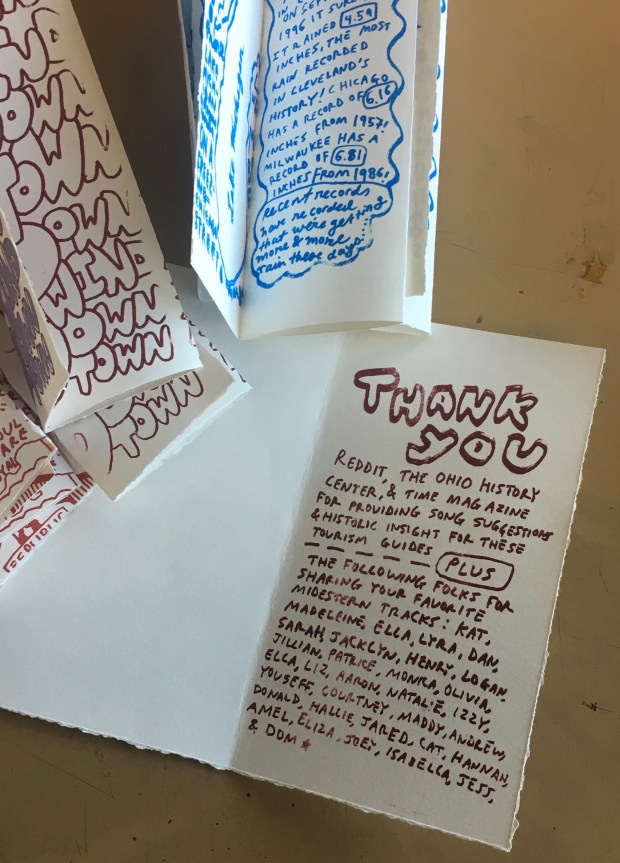 TOWN
TOWN
TOWN
DOWN
WIND
DOWN
TOWN
TOWN
1996 IT
IT RAINED 4.59
INCHES, THE MOST
RAIN RECORDED
IN CLEVELAND'S
HISTORY! CHICAGO
HAS A RECORD OF 6.16
INCHES FROM 1957!
MILWAUKEE HAS A
RECORD OF 6.81
INCHES FROM 1986!
recent records
have recorded
that we're getting
more & more
rain these days...
STREET
ARE
THANK
YOU
REDDIT, THE OHIO HISTORY
CENTER, & TIME MAGAZINE
FOR PROVIDING SONG SUGGESTIONS
& HISTORIC INSIGHT FOR THESE
TOURISM GUIDES
PLUS
THE FOLLOWING FOLKS FOR
SHARING YOUR FAVORITE
MIDESTERN TRACKS: KAT,
MADELEINE, ELLA, LYRA, DAN,
SARAH, JACKLYN, HENRY, LOGAN,
JILLIAN, PATRICE, MONICA, OLIVIA,
ELLA, LIZ, AARON, NATALIE, IZZY,
YOUSEFF, COURTNEY, MADDY, ANDREW,
DONALD, HALLIE, JARED, CAT, HANNAN,
AMEL, ELIZA, JOEY, ISABELLA, JESS,
& DOM ★